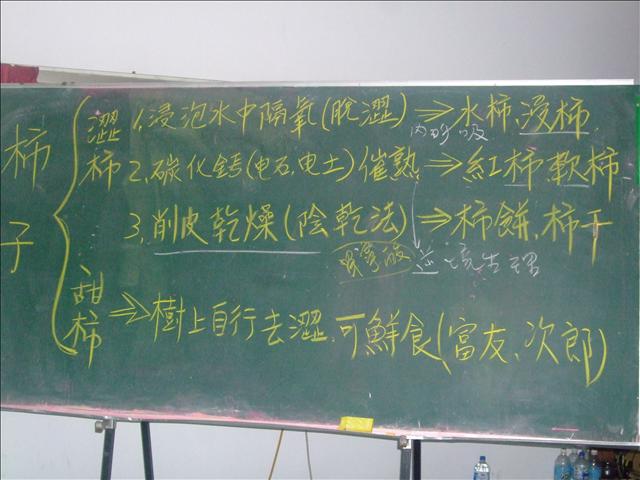 柿子
澀柿
1、浸泡水中隔氧(脫澀)⇒水柿、浸柿
2、碳化鈣(电石、电土)催熟⇒紅柿軟柿
3、削皮乾燥(陰乾法)⇒柿餅、柿干
甜柿⇒樹上自行去澀、可鮮食(富友、次郎)